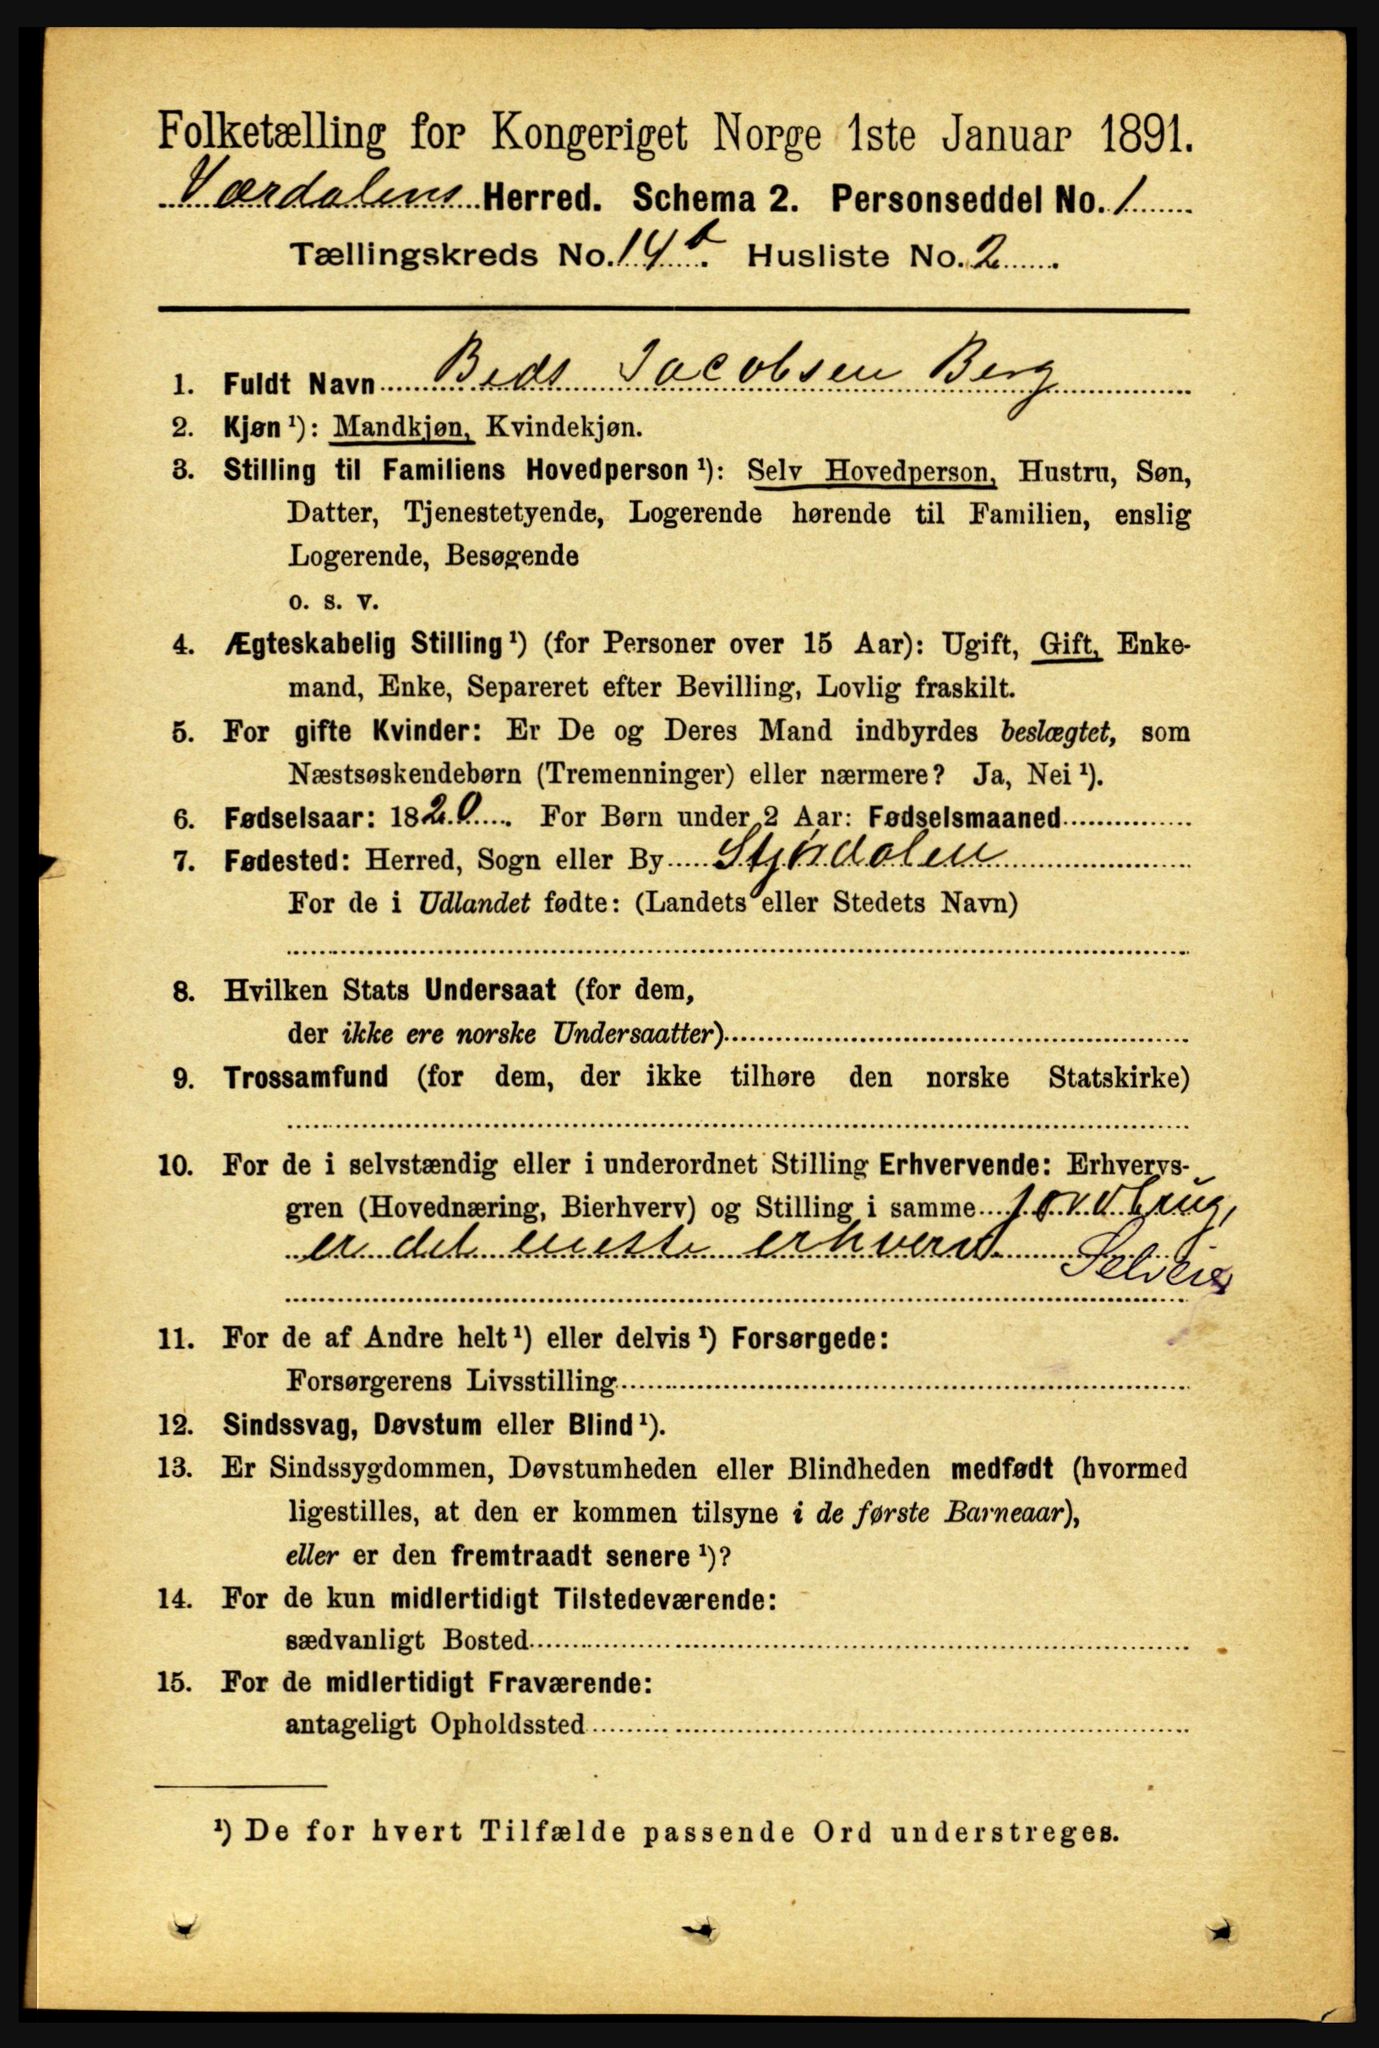 Folketælling for Kongeriget Norge 1ste Januar 1891.
Værdalens Herred. Schema 2. Personseddel No. 1
Tællingskreds No. 14 b. Husliste No. 2
1. Fuldt Navn Beds Jacobsen Berg
2. Kjøn ¹): Mandkjøn, Kvindekjøn.
3. Stilling til Familiens Hovedperson ¹): Selv Hovedperson, Hustru, Søn,
Datter, Tjenestetyende, Logerende hørende til Familien, enslig
Logerende, Besøgende
o. s. v.
4. Ægteskabelig Stilling ¹) (for Personer over 15 Aar): Ugift, Gift, Enke-
mand, Enke, Separeret efter Bevilling, Lovlig fraskilt.
5. For gifte Kvinder: Er De og Deres Mand indbyrdes beslægtet, som
Næstsøskendebørn (Tremenninger) eller nærmere? Ja, Nei ¹).
6. Fødselsaar: 1820. For Børn under 2 Aar: Fødselsmaaned
7. Fødested: Herred, Sogn eller By Stjørdalen
For de i Udlandet fødte: (Landets eller Stedets Navn)
8. Hvilken Stats Undersaat (for dem,
der ikke ere norske Undersaatter)
9. Trossamfund (for dem, der ikke tilhøre den norske Statskirke)
10. For de i selvstændig eller i underordnet Stilling Erhvervende: Erhvervs-
gren (Hovednæring, Bierhverv) og Stilling i samme jordbrug,
er det eneste erhverv. Selveier
11. For de af Andre helt ¹) eller delvis ¹) Forsørgede:
Forsørgerens Livsstilling
12. Sindssvag, Døvstum eller Blind ¹).
13. Er Sindssygdommen, Døvstumheden eller Blindheden medfødt (hvormed
ligestilles, at den er kommen tilsyne i de første Barneaar),
eller er den fremtraadt senere ¹)?
14. For de kun midlertidigt Tilstedeværende:
sædvanligt Bosted
15. For de midlertidigt Fraværende:
antageligt Opholdssted
¹) De for hvert Tilfælde passende Ord understreges.